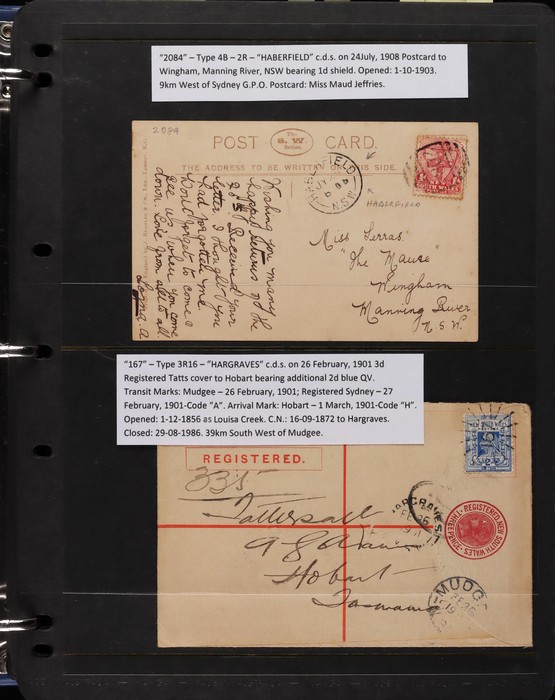 "2084" – Type 4B – 2R – "HABERFIELD" c.d.s. on 24July, 1908 Postcard to
Wingham, Manning River, NSW bearing 1d shield. Opened: 1-10-1903.
9km West of Sydney G.P.O. Postcard: Miss Maud Jeffries.
2084
POST CARD.
The
S. W.
Series
THE ADDRESS TO BE WRITTEN ON THIS SIDE.
HABERFIELD
N.S.W
SOUTH WALES
HABERFIELD
Wishing you many
happy returns of the
Received your
letter I thought you
had forgotten me
Dont forget to come &
see us when you come
down. Love from all to all
Miss
"The
Wingham
Manning River
N.S.W
"167" – Type 3R16 – "HARGRAVES" c.d.s. on 26 February, 1901 3d
Registered Tatts cover to Hobart bearing additional 2d blue QV.
Transit Marks: Mudgee – 26 February, 1901; Registered Sydney – 27
February, 1901-Code "A". Arrival Mark: Hobart – 1 March, 1901-Code "H".
Opened: 1-12-1856 as Louisa Creek. C.N.: 16-09-1872 to Hargraves.
Closed: 29-08-1986. 39km South West of Mudgee.
REGISTERED.
335
Tattersall
Hobart
Tasmania
HARGRAVES
FE 26
REGISTERED NEW SOUTH WALES
THREEPENCE
MUDG
FE 26